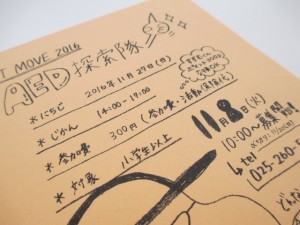 T MOVE 2016
AED探索隊
*にちじ 2016年11月27日(日)
*じかん 14:00-17:00
*参加費 300円(参加費・活動(保険代)
*対象 小学生以上
11月8日(火)
10:00~募集開始
↳tel
025-260-5
どんな